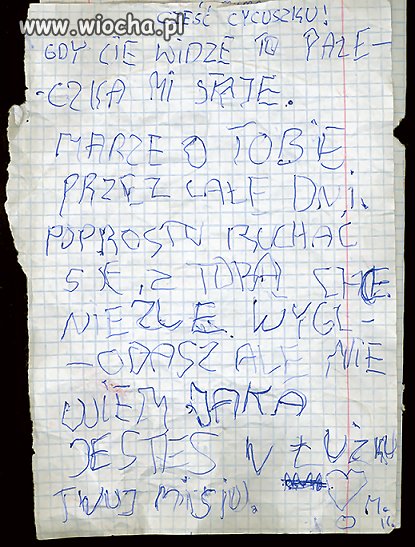 www.wiocha.pl
CZEŚĆ CYCUSZKU!
GDY CIE WIDZE TO PAŁE-
-CZKA MI STAJE.
MARZE O TOBIE
PRZEZ CAŁE DNI.
POPROSTU RUCHAĆ
SIE, Z TOBĄ CHCE.
NIEZLE WYGL-
-ODASZ ALE NIE
WIEM JAKA
JESTES W ŁUŻKU
TWUJ MISIU.
M.K.